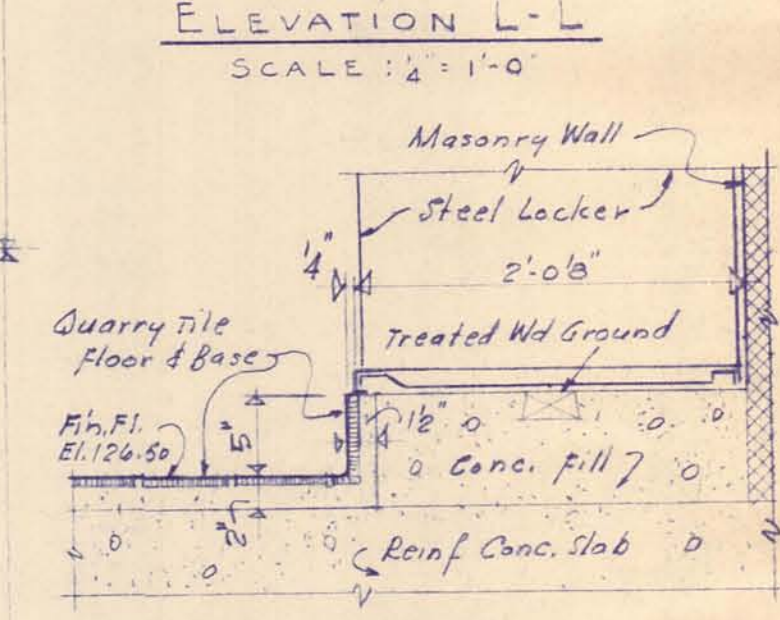 ELEVATION L-L
SCALE : 1/4" = 1'-0"
Masonry Wall
Steel Locker
1/4"
2'-0 1/8"
Quarry Tile
Floor & Base
Treated Wd Ground
Fin. Fl.
El. 126.50
5"
1 1/2"
Conc. Fill
2"
Reinf Conc. Slab